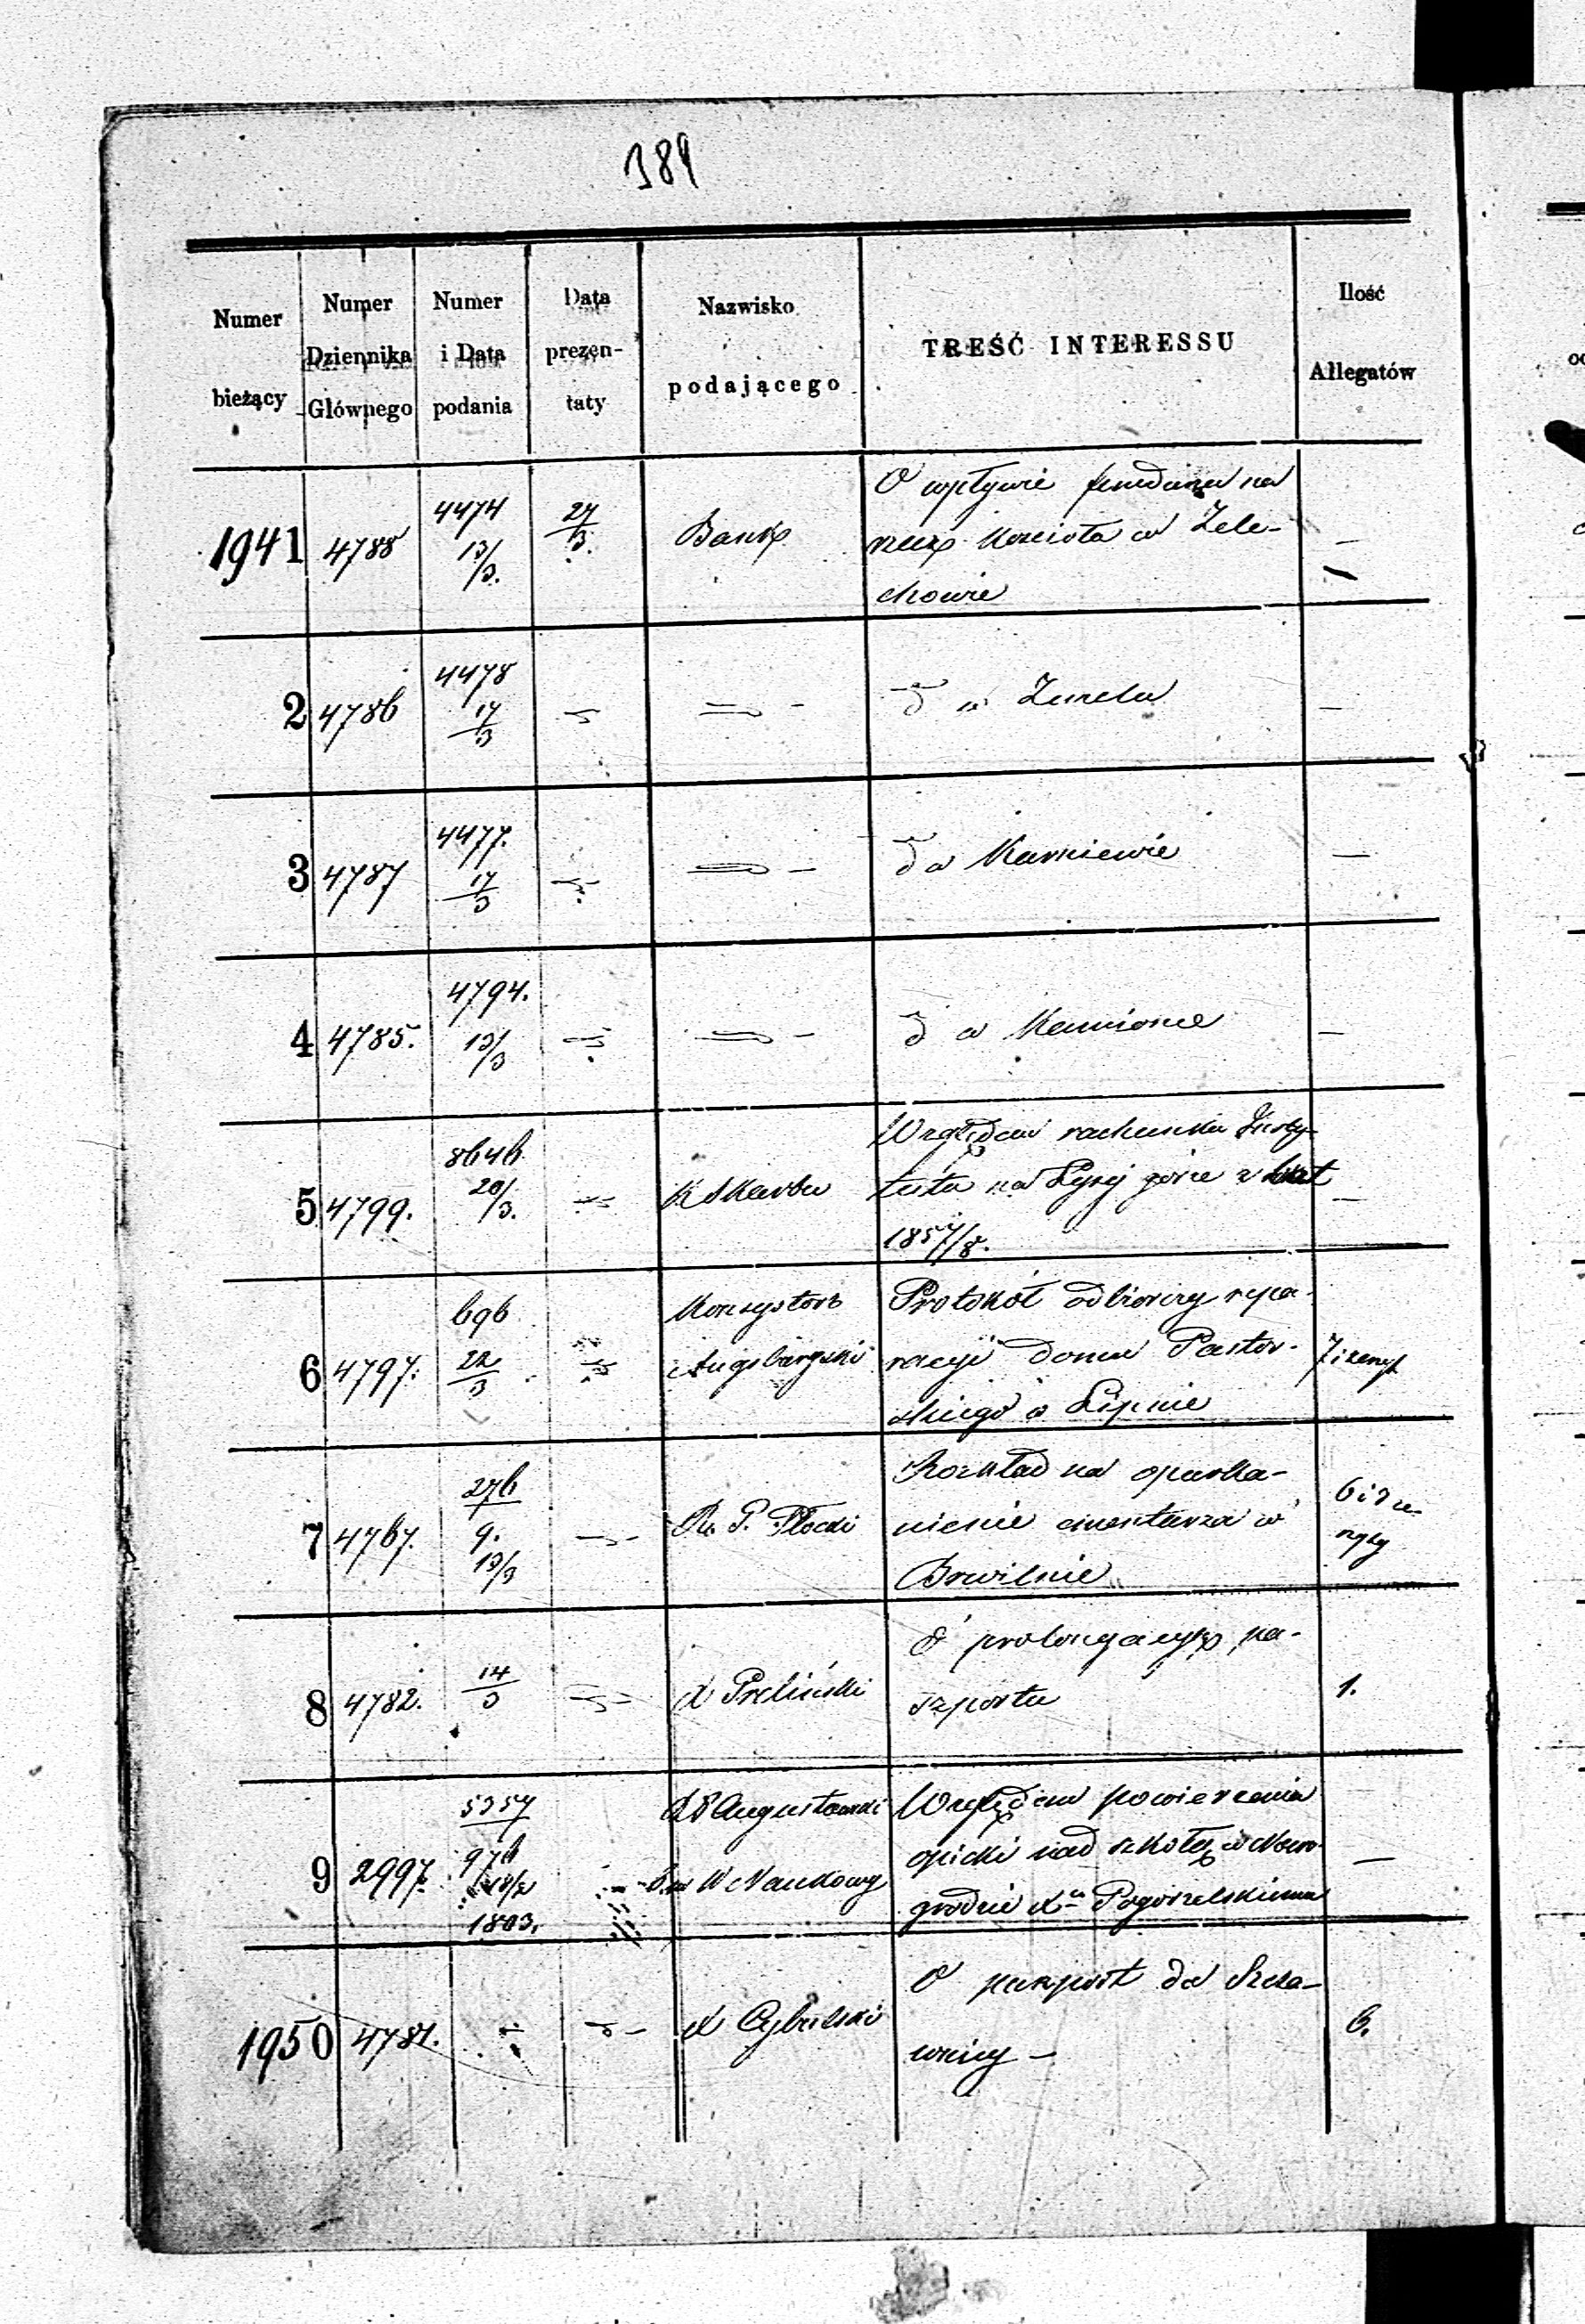 389
Numer bieżący
Numer Dziennika Głównego
Numer i Data podania
Data prezen-taty
Nazwisko podającego
TREŚĆ INTERESSU
Ilość Allegatów
1941 4788 4474 13/3. 27/3. Bank
O wpływie funduszu na
rzecz Kościoła w Żele-
chowie
—
2 4786 4478 17/3 — w Zuzelu —
3 4787 4477. 17/3 — w Karniewie —
4 4785. 4794. 13/3 — w Kamionce —
5 4799. 8646 20/3. K Skarbu
Względem rachunku Insty-
tutu na Łysej górze z lat
1857/8.
—
6 4797. 696 22/3
Konsystorz
Augsburgski
Protokół odbiorczy repa-
racyi domu Pastor-
skiego w Lipnie
7 4767. 276 9. 13/3 R. G. Płocki
Rozkład na oparka-
nienie cmentarza w
Brwilnie
8 4782. 14/3 X Preliński
O prolongacyę pa-
szportu
1.
9 2997. 5357 976 18/2 1863.
R G Augustowski
W Naukowy
Względem powierzenia
opieki nad szkołą w Nowo-
grodzie Xu Pogorzelskiemu
—
1950 4781. X Cybulski
O paszport do Szcza-
wnicy —
6.